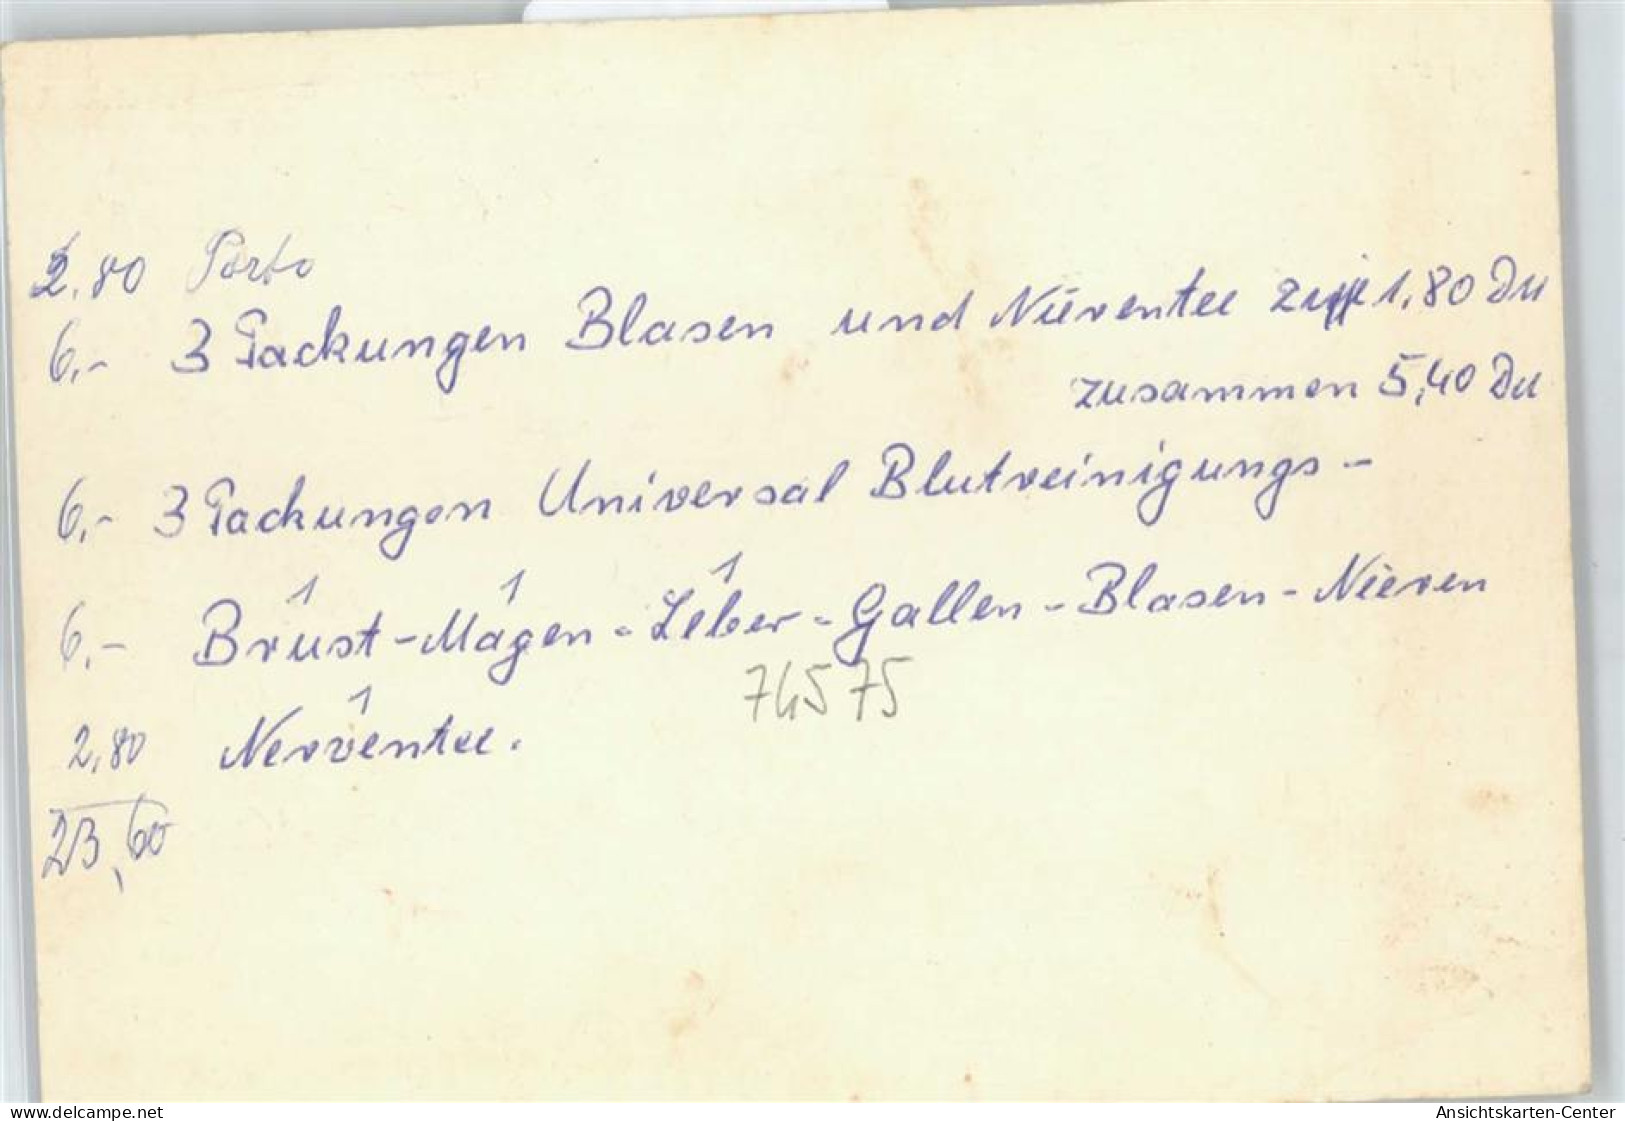 2,80 Porto
6,- 3 Packungen Blasen und Nierentee zu je 1,80 DM
zusammen 5,40 DM
6,- 3 Packungen Universal Blutreinigungs-
1 1 1
6,- Brust-Magen-Leber-Gallen-Blasen-Nieren
74575
1
2,80 Nerventee.
23,60
www.delcampe.net
Ansichtskarten-Center